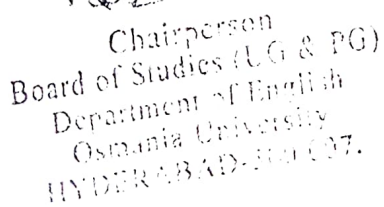 Chairperson
Board of Studies (UG & PG)
Department of English
Osmania University
HYDERABAD-